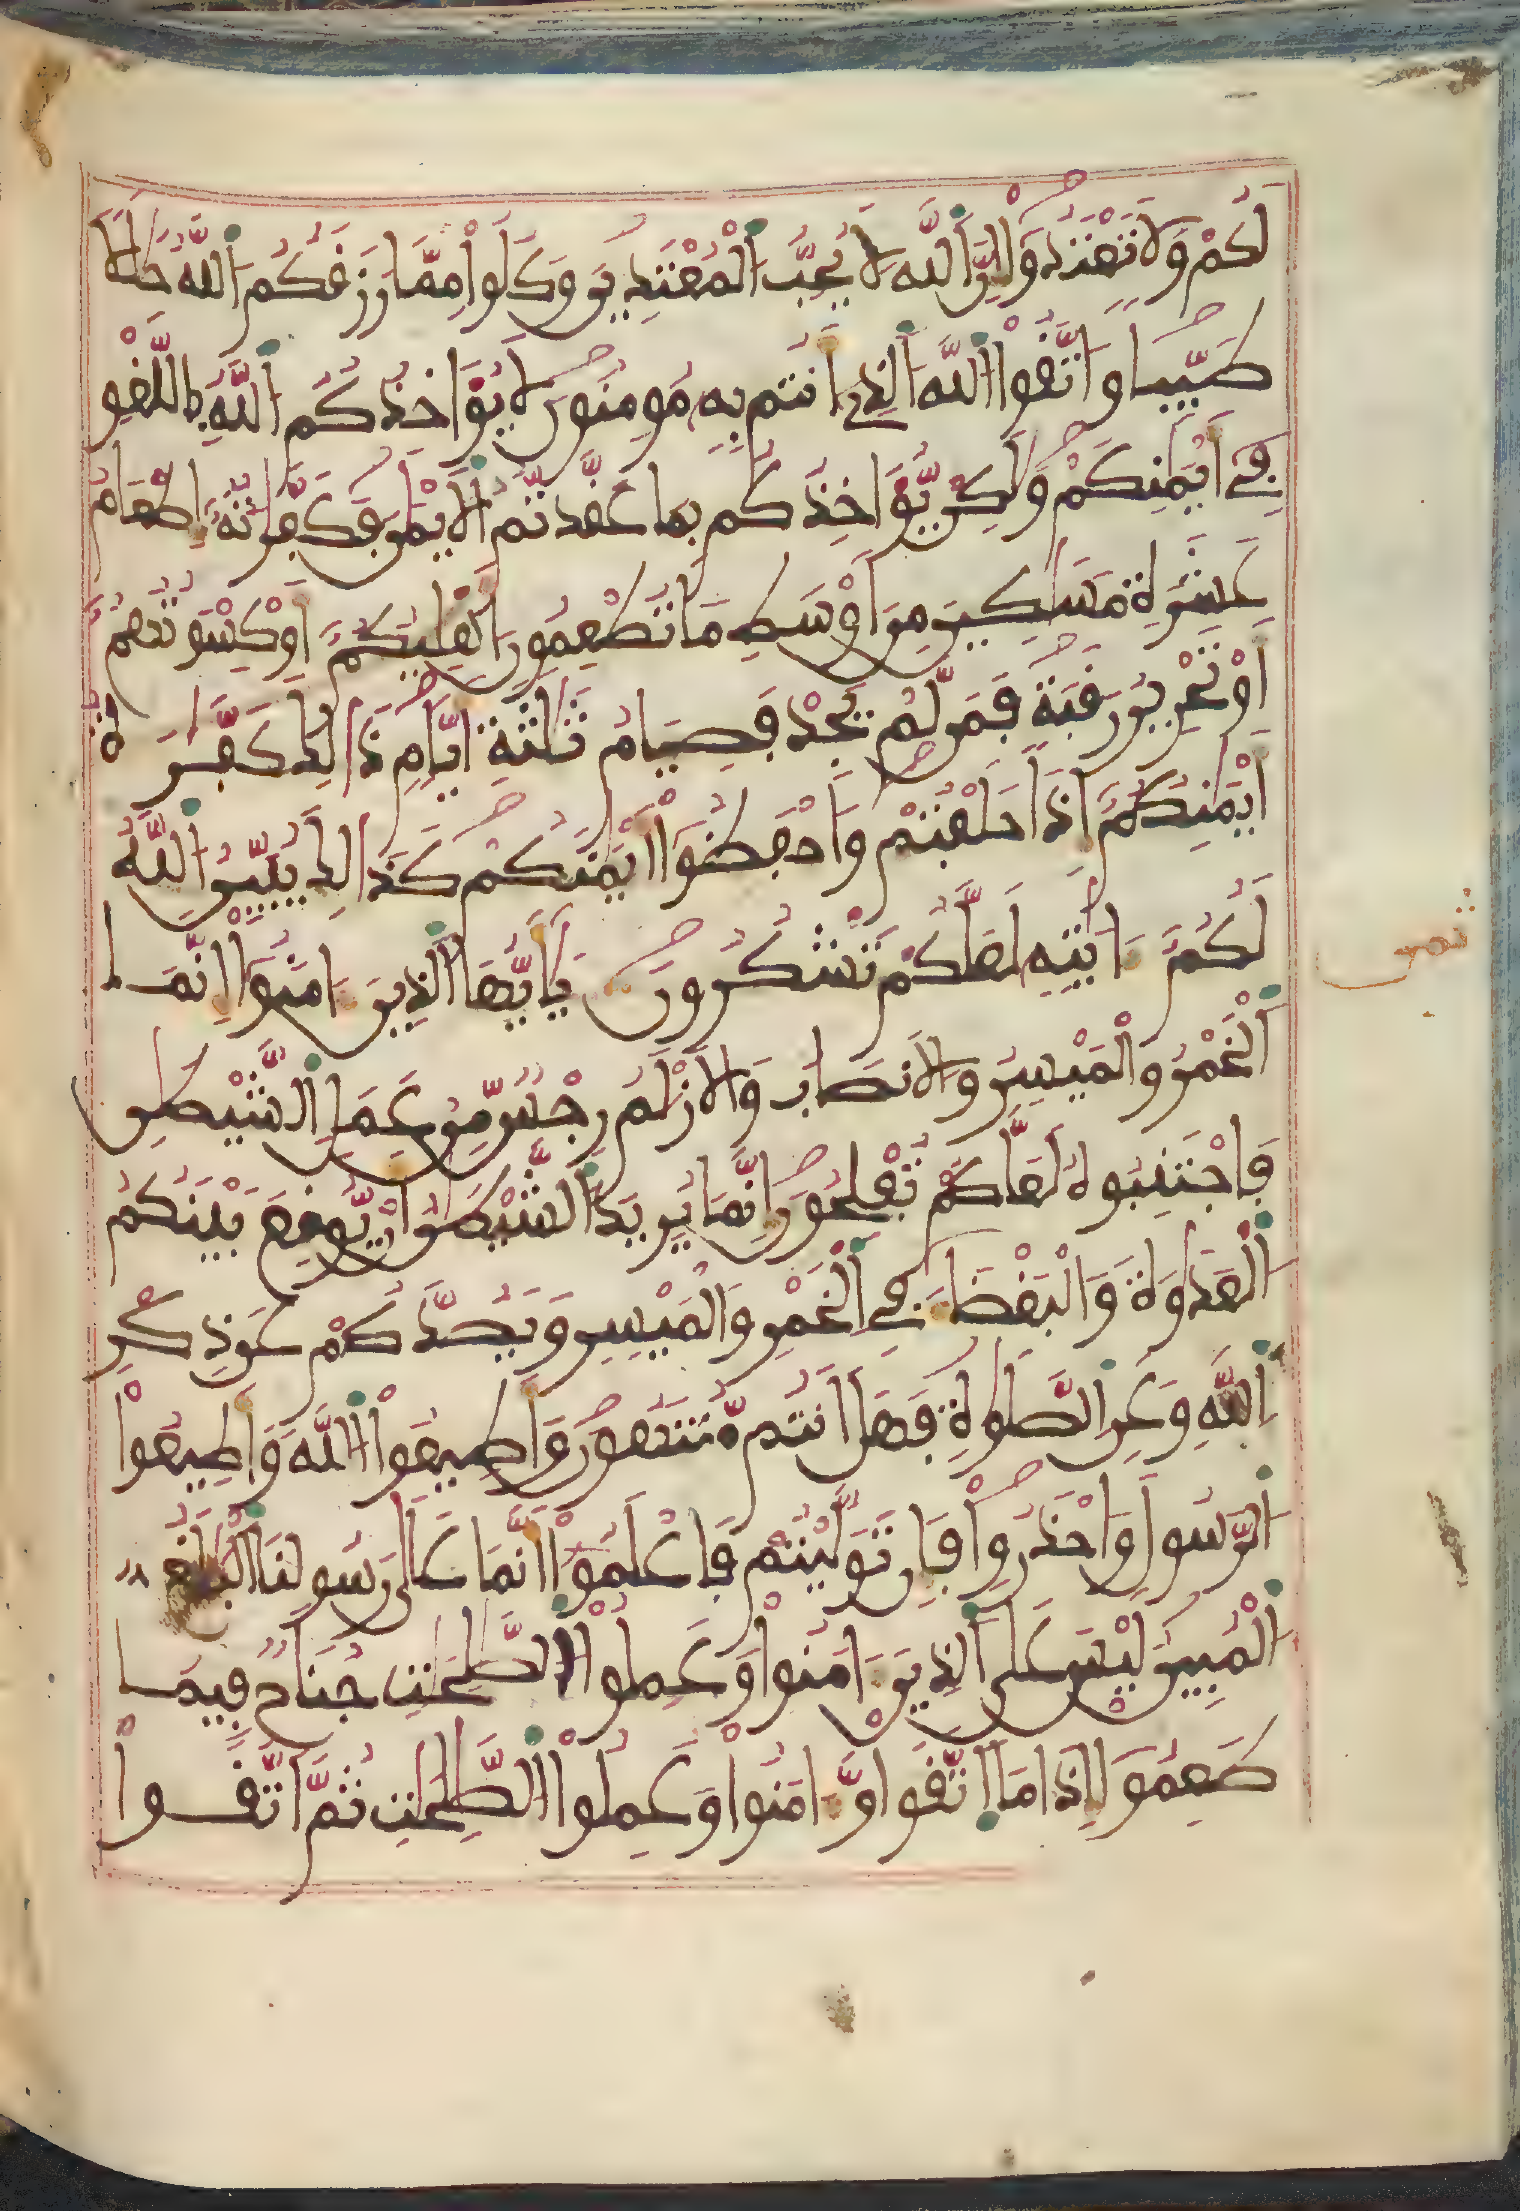 لَكُمْ وَلَا تَعْتَدُوٓا۟ إِنَّ ٱللَّهَ لَا يُحِبُّ ٱلْمُعْتَدِينَ وَكُلُوا۟ مِمَّا رَزَقَكُمُ ٱللَّهُ حَلَٰلًا
طَيِّبًا وَٱتَّقُوا۟ ٱللَّهَ ٱلَّذِےٓ أَنتُم بِهِۦ مُومِنُونَ لَا يُؤَاخِذُكُمُ ٱللَّهُ بِٱللَّغْوِ
فِےٓ أَيْمَٰنِكُمْ وَلَٰكِنْ يُّؤَاخِذُكُم بِمَا عَقَّدتُّمُ ٱلْأَيْمَٰنَ فَكَفَّٰرَتُهُۥٓ إِطْعَامُ
عَشَرَةِ مَسَٰكِينَ مِنْ أَوْسَطِ مَا تُطْعِمُونَ أَهْلِيكُمُۥٓ أَوْ كِسْوَتُهُمُۥٓ
أَوْ تَحْرِيرُ رَقَبَةٍ فَمَن لَّمْ يَجِدْ فَصِيَامُ ثَلَٰثَةِ أَيَّامٍ ذَٰلِكَ كَفَّٰرَةُ
أَيْمَٰنِكُمُۥٓ إِذَا حَلَفْتُمْ وَٱحْفَظُوٓا۟ أَيْمَٰنَكُمْ كَذَٰلِكَ يُبَيِّنُ ٱللَّهُ
لَكُمُۥٓ ءَايَٰتِهِۦ لَعَلَّكُمْ تَشْكُرُونَ يَٰٓأَيُّهَا ٱلَّذِينَ ءَامَنُوٓا۟ إِنَّمَا
ثمن
ٱلْخَمْرُ وَٱلْمَيْسِرُ وَٱلْأَنصَابُ وَٱلْأَزْلَٰمُ رِجْسٌ مِّنْ عَمَلِ ٱلشَّيْطَٰنِ
فَٱجْتَنِبُوهُ لَعَلَّكُمْ تُفْلِحُونَ إِنَّمَا يُرِيدُ ٱلشَّيْطَٰنُ أَنْ يُّوقِعَ بَيْنَكُمُ
ٱلْعَدَٰوَةَ وَٱلْبَغْضَآءَ فِے ٱلْخَمْرِ وَٱلْمَيْسِرِ وَيَصُدَّكُمْ عَن ذِكْرِ
ٱللَّهِ وَعَنِ ٱلصَّلَوٰةِ فَهَلْ أَنتُم مُّنتَهُونَ وَأَطِيعُوا۟ ٱللَّهَ وَأَطِيعُوا۟
ٱلرَّسُولَ وَٱحْذَرُوا۟ فَإِن تَوَلَّيْتُمْ فَٱعْلَمُوٓا۟ أَنَّمَا عَلَىٰ رَسُولِنَا ٱلْبَلَٰغُ
ٱلْمُبِينُ لَيْسَ عَلَى ٱلَّذِينَ ءَامَنُوا۟ وَعَمِلُوا۟ ٱلصَّٰلِحَٰتِ جُنَاحٌ فِيمَا
طَعِمُوٓا۟ إِذَا مَا ٱتَّقَوا۟ وَّءَامَنُوا۟ وَعَمِلُوا۟ ٱلصَّٰلِحَٰتِ ثُمَّ ٱتَّقَوا۟